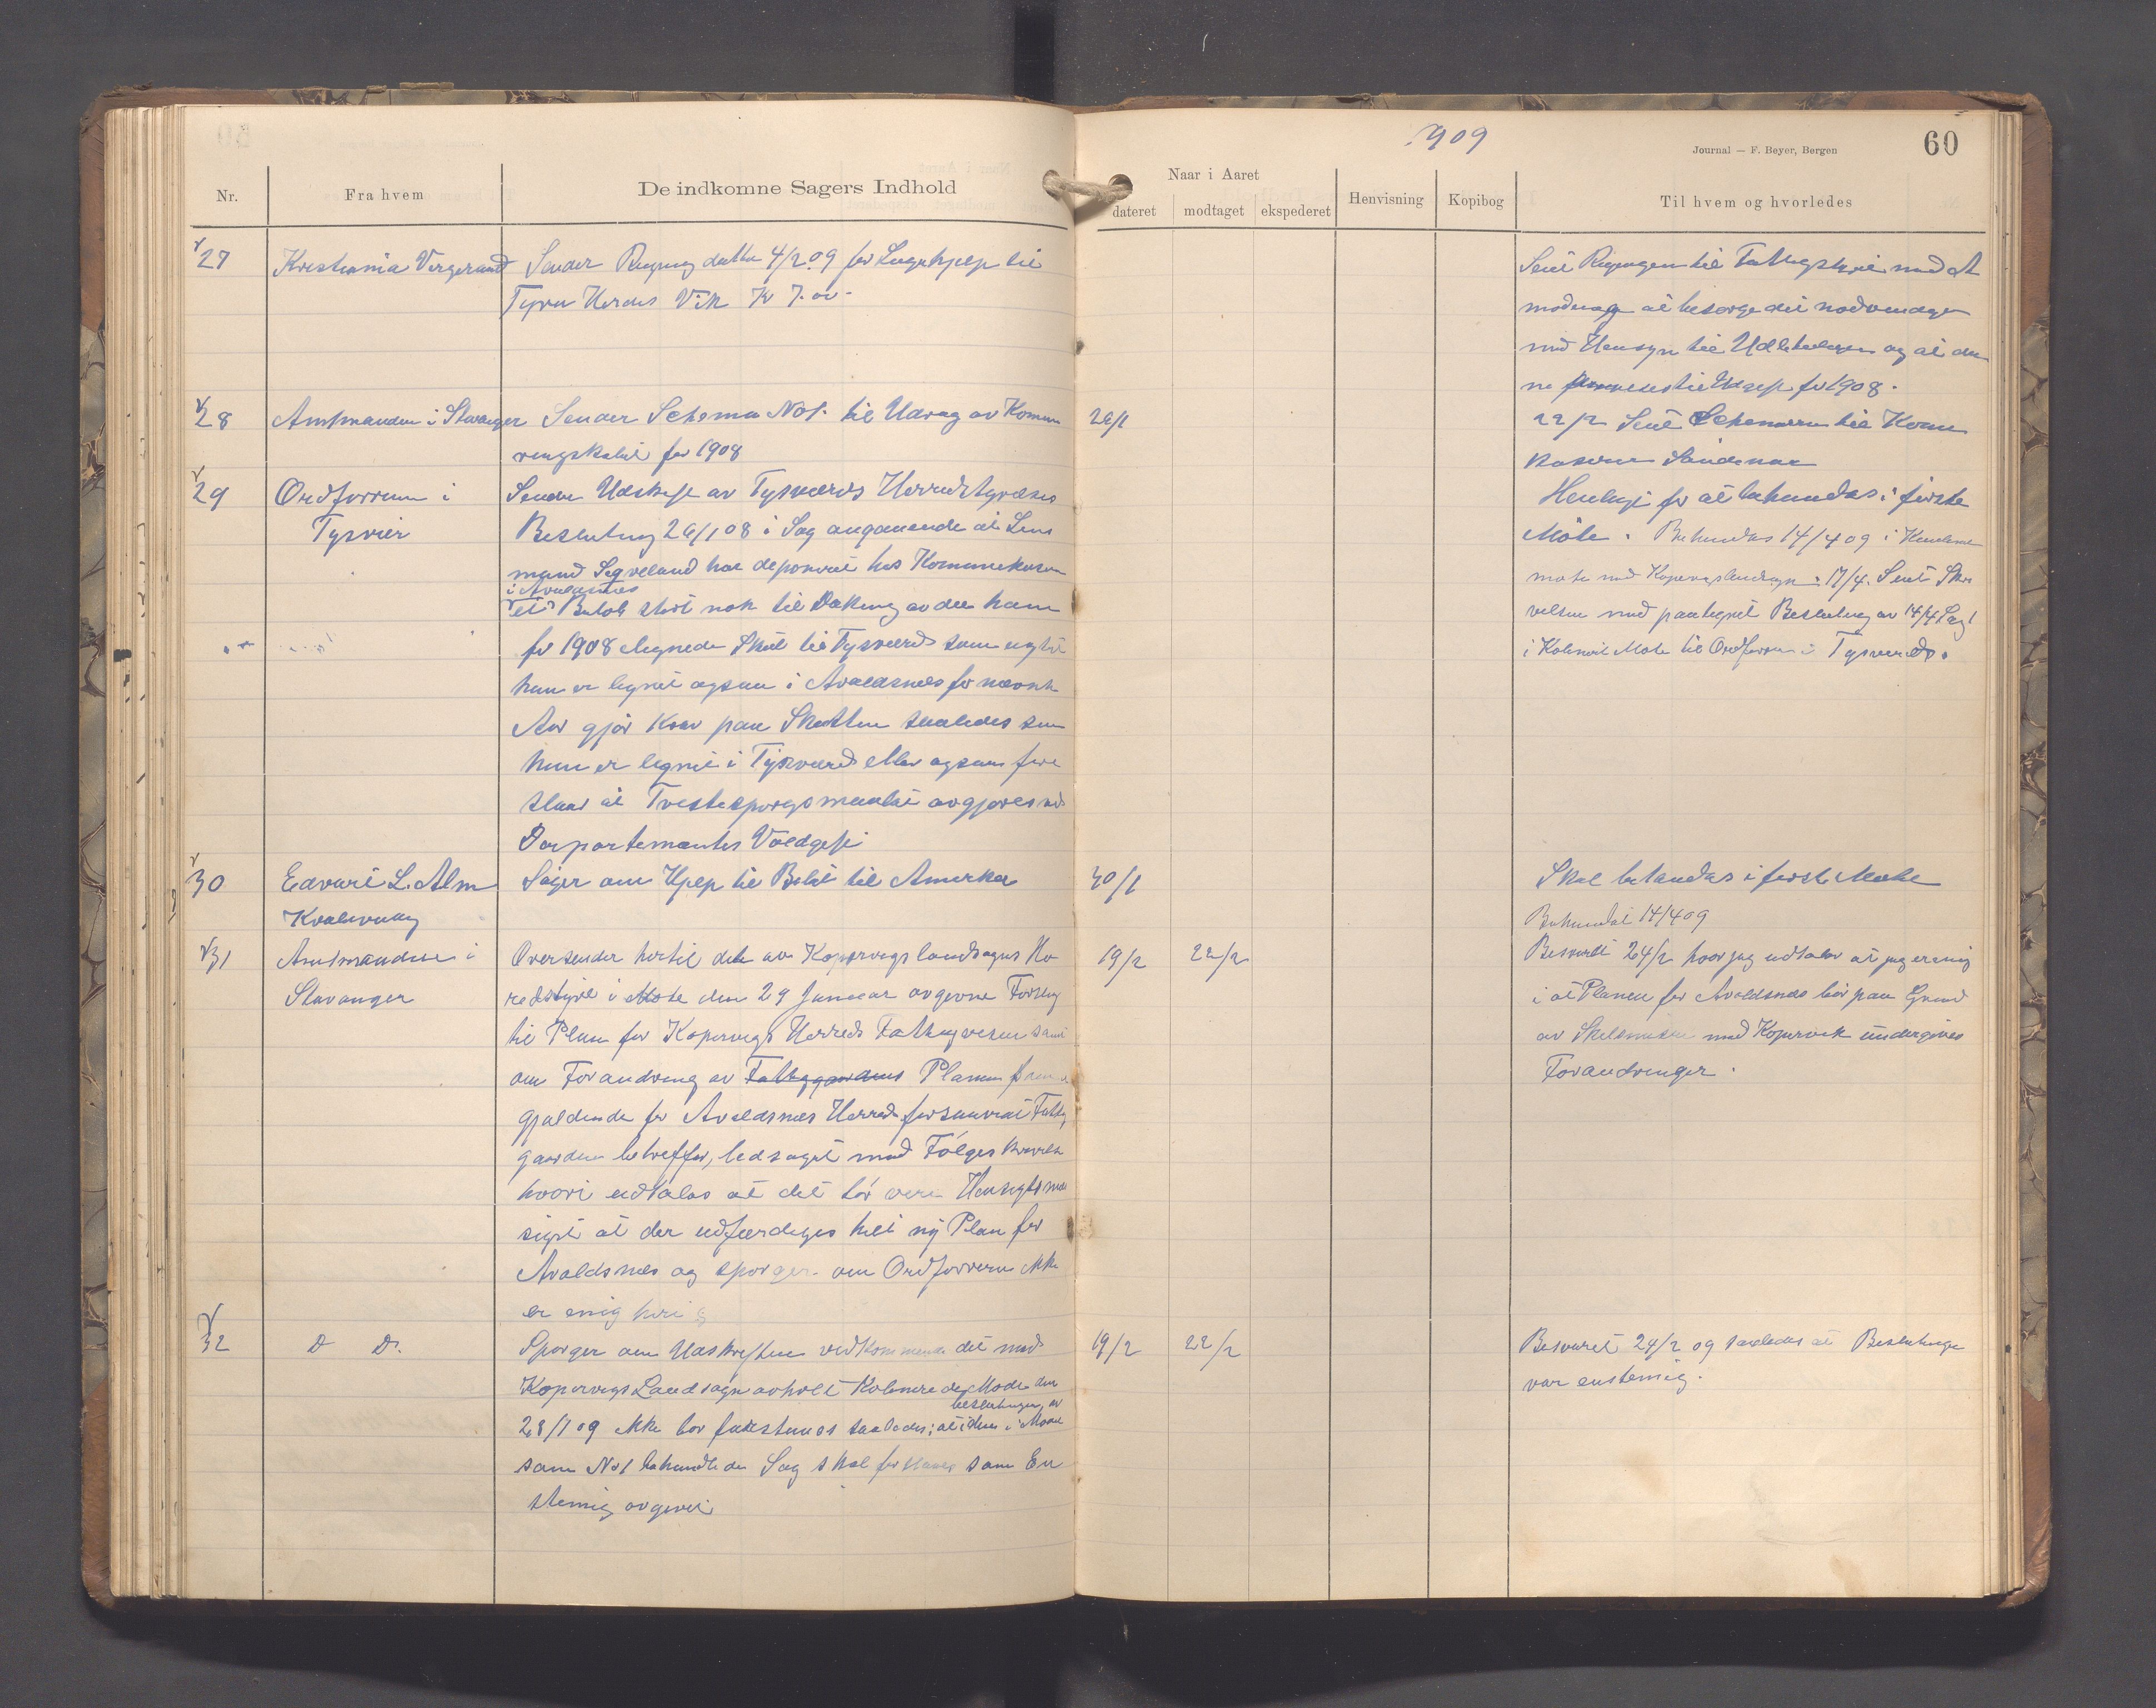 909
60
Journal — F. Beyer, Bergen
Nr.
Fra hvem
De indkomne Sagers Indhold
Naar i Aaret
dateret
modtaget
ekspederet
Henvisning
Kopibog
Til hvem og hvorledes
27
Kristiania
Sender Regning datta 4/2 09 for Lægehjelp til
Vik Kr 7.00 -
til med at
at besørge det nødvendige
med Hensyn til og at den
ne til Udgift for 1908.
28
Amtmanden i Stavanger
Sender Schema No 1. til Udrag av Kommu
for 1908
26/1
22/2 Sent Schemaen til Kom
29
Ordføreren i
Tysvær
Sender Udskrift av Tysværs Herredstyrelses
Beslutning 26/1 08 i Sag angaaende at Lens
mand har deponeret hos Kommunekassen
i Avaldsnes
et Beløb stort nok til Dækning av den ham
for 1908 ilignede Skat til Tysvær som
han er lignet ogsaa i Avaldsnes for nævnte
Aar gjør Krav paa Skatten saaledes som
han er lignet i Tysvær eller ogsaa fore
slaar at Tvistespørgsmaalet avgjøres ved
Departementes Voldgift
Henlagt for at behandles i første
Møte. Behandles 14/4 09 i
møte med 17/4. Sent Skri
velsen med paategnet Beslutning av 14/4
i Møte til Ordføreren i Tysvær.
30
L. Alm
Søger om Hjelp til Billet til Amerika
30/1
Skal behandles i første Møte
Behandlet 14/4 09
31
Amtmanden i
Stavanger
Oversender hertil det av Kopervigs landsogns He
redstyre i Møte den 29 Januar avgivne Forslag
til Plan for Kopervigs Herreds Fattigvesen samt
om Forandring av Fattiggaardens Planen
gjældende for Avaldsnes Herred forsaavidt Fattig
gaarden betreffer, ledsaget med Følgeskrivelse
hvori udtales at det bør være Hensigtsmæs
sigst at der udfærdiges helt ny Plan for
Avaldsnes og spørger om Ordføreren ikke
er enig heri
19/2
22/2
Besvaret 24/2 hvor jeg udtaler at jeg er enig
i at Planen for Avaldsnes bør paa Grund
av Skilsmissen med Kopervik undergives
Forandringer.
32
D D.
Spørger om Udskriften vedkommende det med
Kopervigs Landsogn avholdt Møde den
beslutningen av
28/1 09 ikke bør saaledes; at den i Møde
som No 1 behandlede Sag skal som En
stemig avgivet
19/2
22/2
Besvaret 24/2 09 saaledes at Beslutningen
var enstemig.